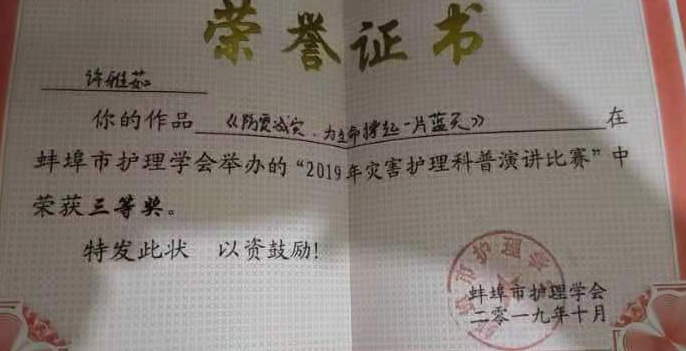 荣誉证书
许雅茹
你的作品 《防震减灾·为生命撑起一片蓝天》 在
蚌埠市护理学会举办的“2019年灾害护理科普演讲比赛”中
荣获三等奖。
特发此状 以资鼓励!
蚌埠市护理学会
蚌埠市护理学会
二零一九年十月